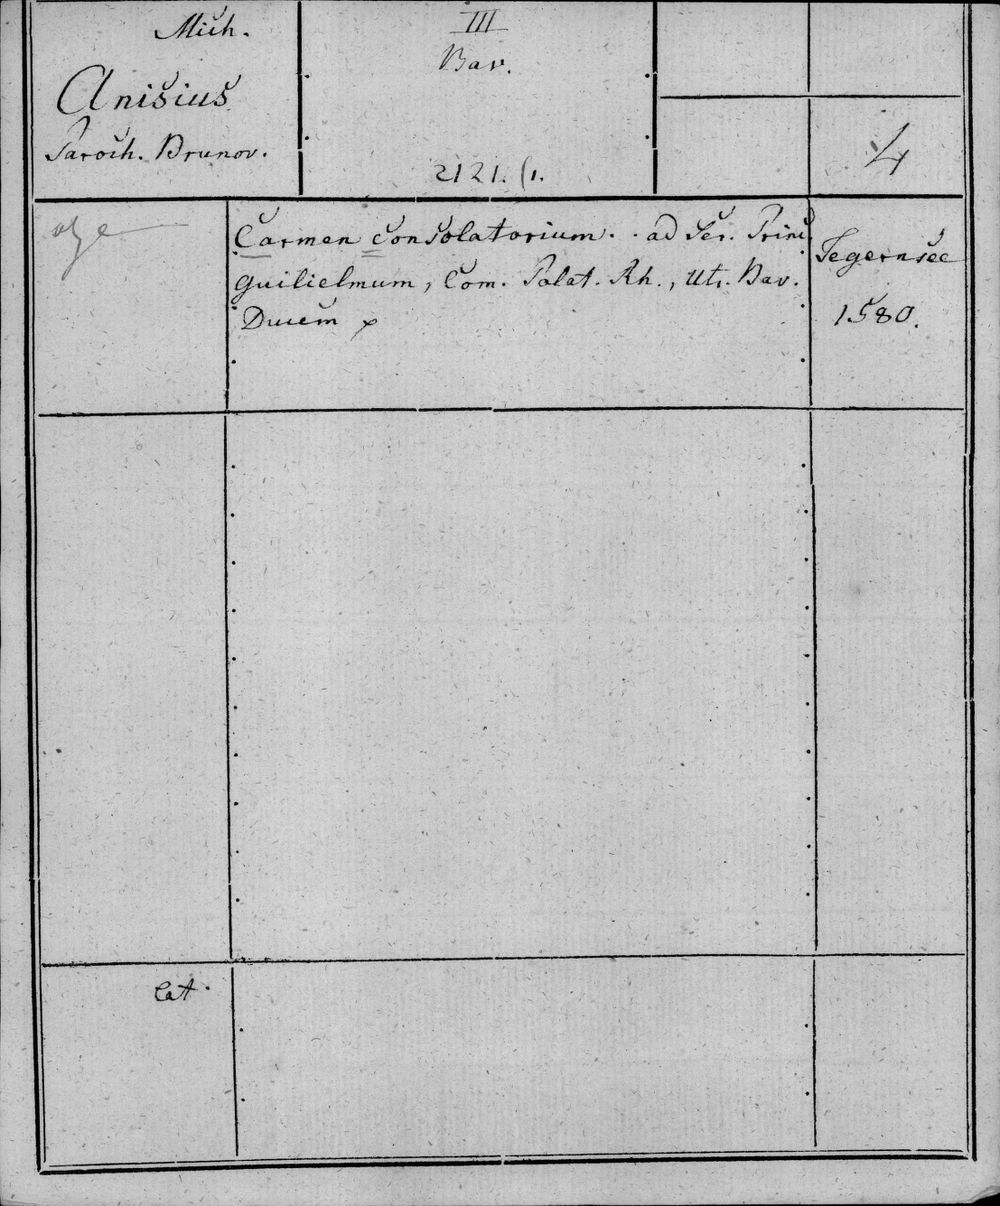 Mich.
Anisius
Paroch. Brunov.
III
Bav.
2121. (1.
4
Carmen consolatorium . . ad Ser. Princ
Guilielmum, Com. Palat. Rh., Utr. Bav.
Ducem
Tegernsee
1580.
Lat.